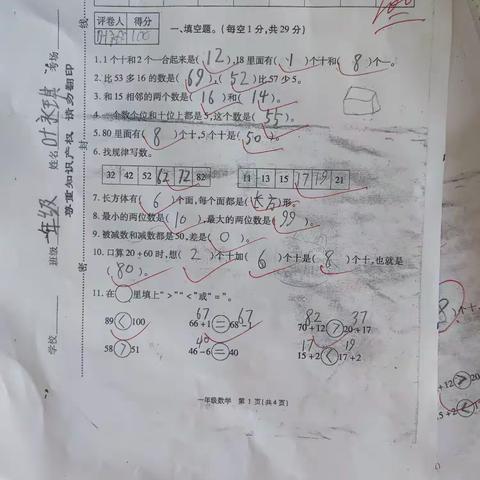 评卷人 得分
叶永琪 100
一、填空题。(每空1分,共29分)
1. 1个十和2个一合起来是( 12 ),18里面有( 1 )个十和( 8 )个一。
2. 比53多16的数是( 69 ),( 52 )比57少5。
3. 和15相邻的两个数是( 16 )和( 14 )。
4. 一个数个位和十位上都是5,这个数是( 55 )。
5. 80里面有( 8 )个十,5个十是( 50 )。
6. 找规律写数。
32 42 52 62 72 82
11 13 15 17 19 21
7. 长方体有( 6 )个面,每个面都是(长方)形。
8. 最小的两位数是( 10 ),最大的两位数是( 99 )。
9. 被减数和减数都是50,差是( 0 )。
10. 口算20+60时,想( 2 )个十加( 6 )个十是( 8 )个十,也就是
( 80 )。
11. 在○里填上“>”“<”或“=”。
82 37
67 67
89<100 66+1=68-1 70+12>20+17
40 17 19
58>51 46-6=40 15+2<17+2
一年级数学 第1页(共4页)
学校
班级 一年级
姓名 叶永琪
考场
尊重知识产权 请勿翻印
密 封 线
100
8)个十
+12>20
5+2<1